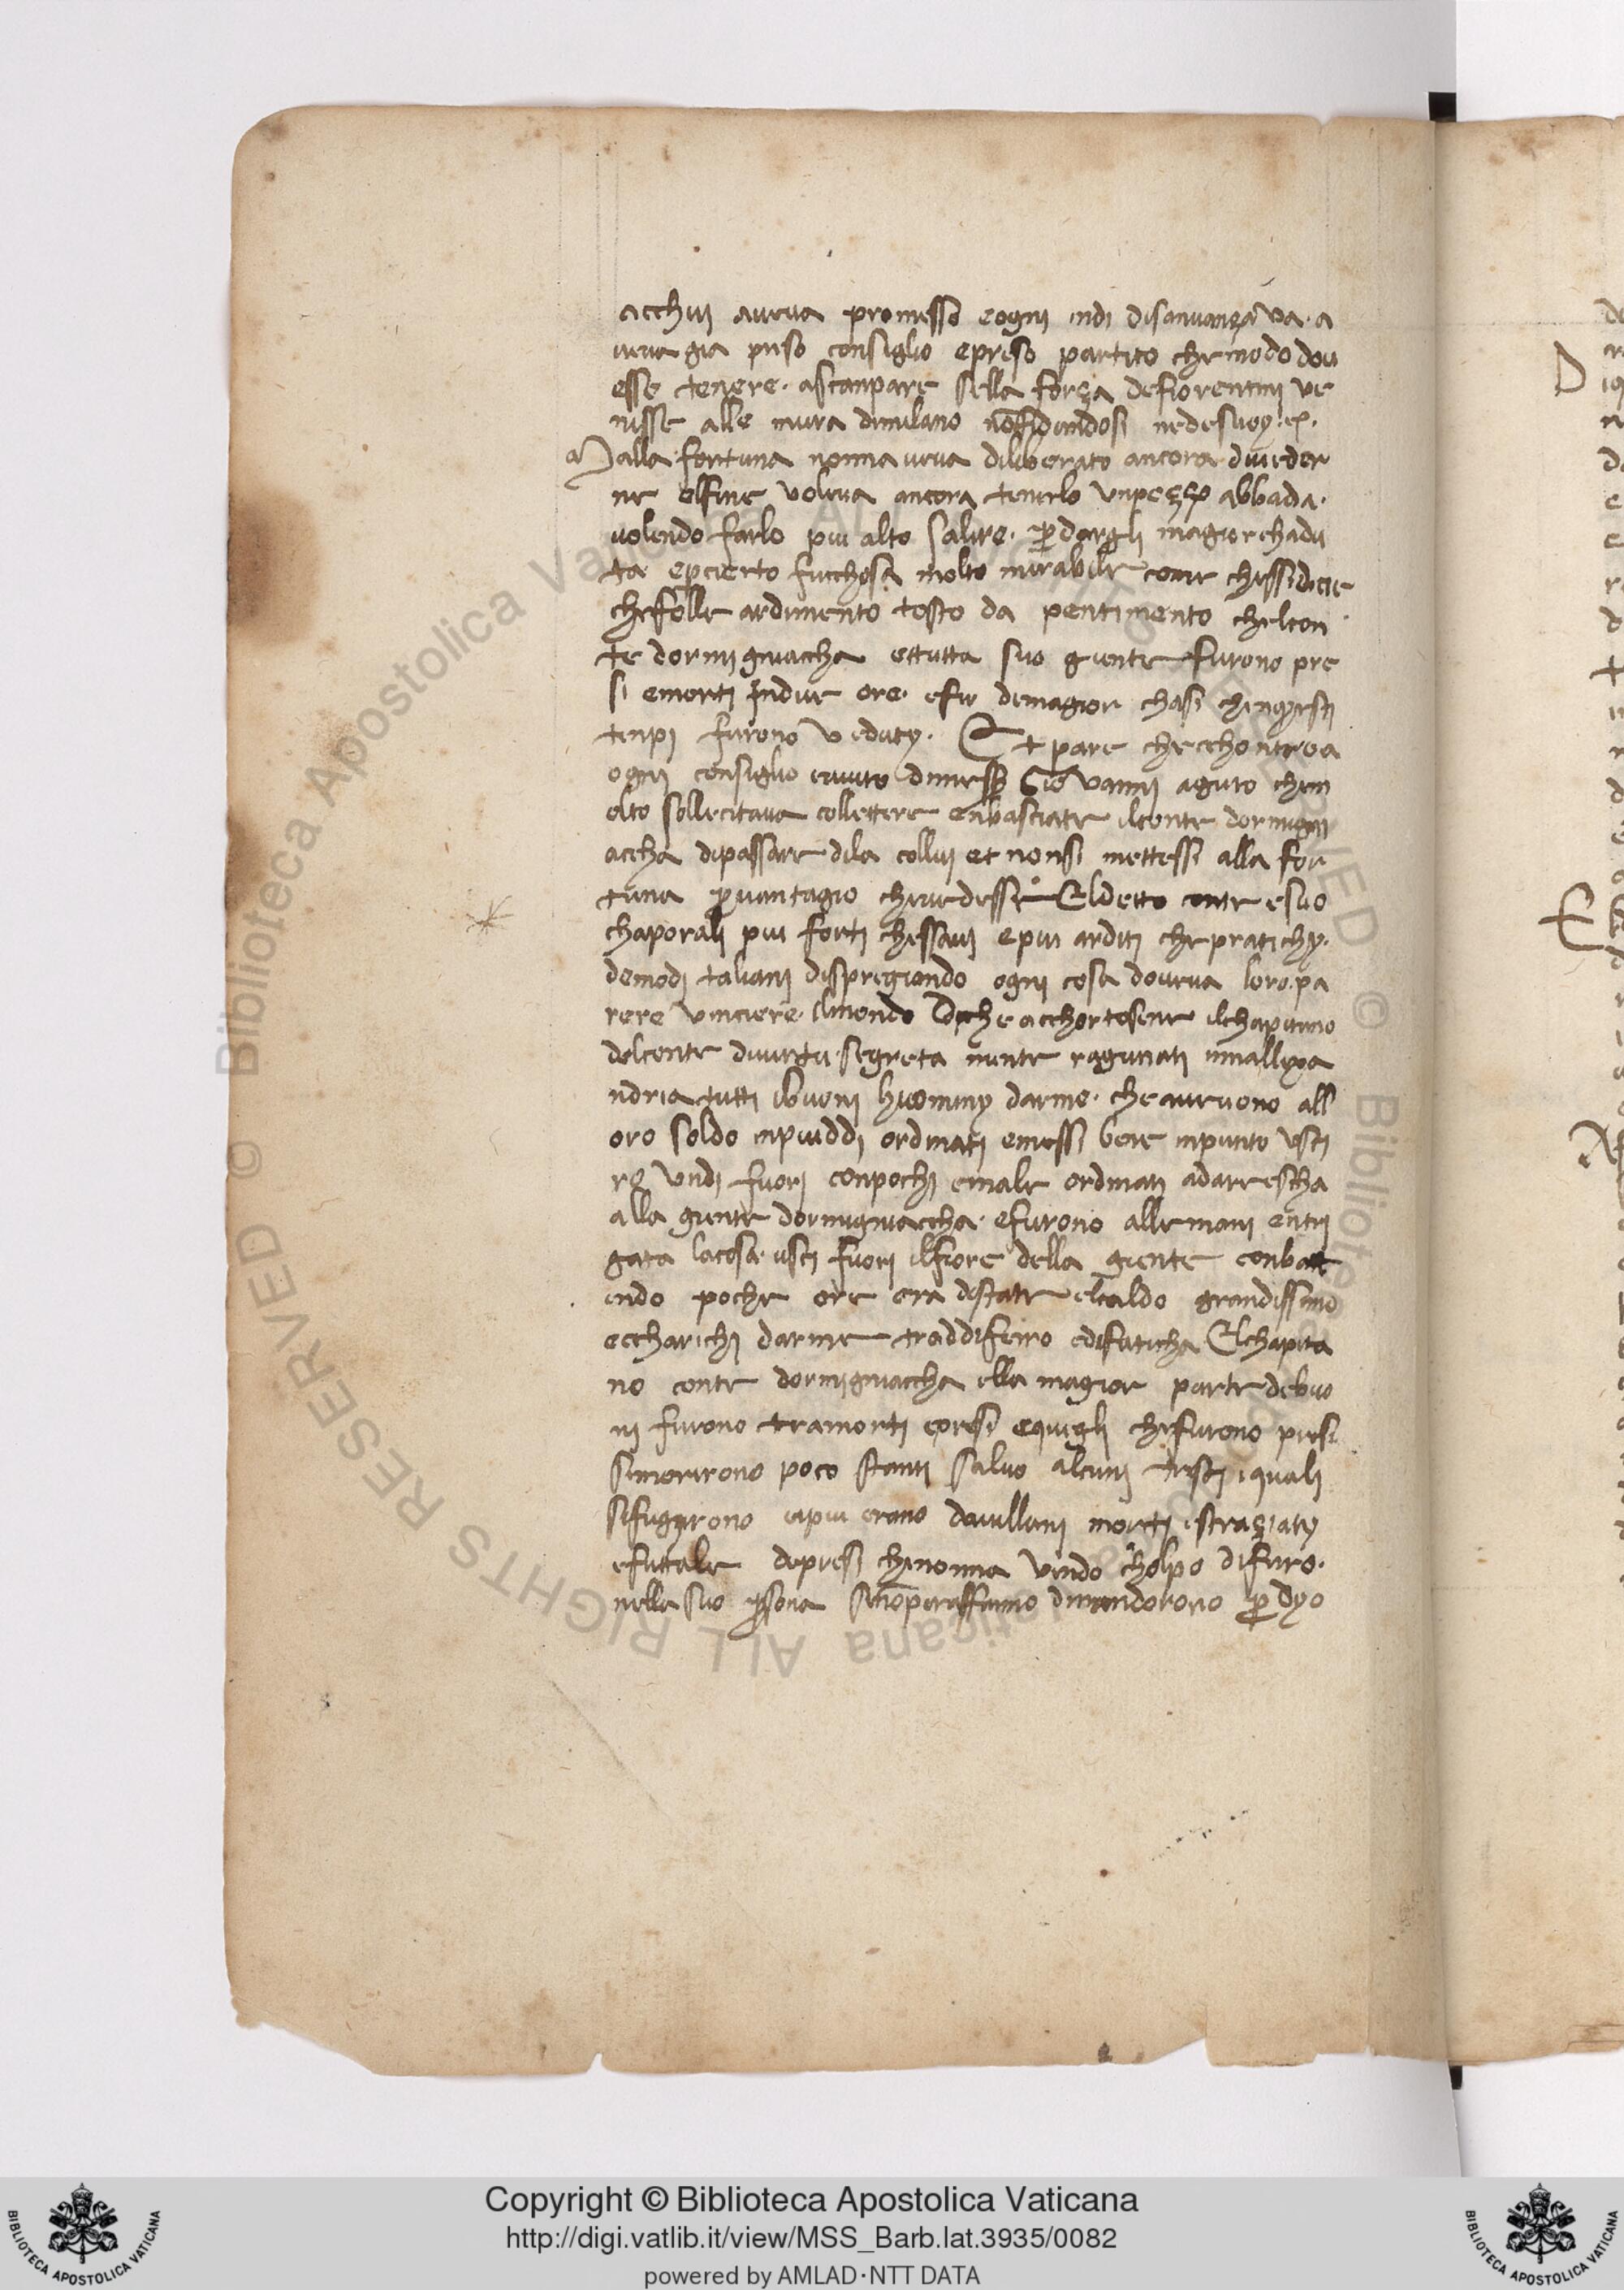 acchuj aveva promesso eognj indi disanvança va. a
veva gia preso consiglio epreso partito chemodo dou
esse tenere. ascanpare sella força defiorentinj ve
nisse alle mura dimilano nōfidandosi nedesuoy.
Malla fortuna nonna veva diliberato ancora diveder
ne elfine voleva ancora tenerlo vnpeçço abbada.
volendo farlo piu alto salire. p dargli magior chadu
ta epcierto fucchosa molto mirabile come chessidicie
chefolle ardimento tosto da pentimento chelcon
te dormignaccha ettutta suo giente furono pre
si emortj Indue ore. efu demagior chasi chenqestj
tenpi furono veduty. Et pare checchontroa
ognj consiglio avuto dimess Giovannj aguto chem
olto sollecitava collettere enbasciate ilconte dormignj
accha dipassare dila colluj et nonsi mettessi alla for
tuna p vantagio chevedesse Eldetto conte esuo
chaporalj piu fortj chessavj epiu arditj chepratichy.
demodj taliani dispregiando ognj cosa doveva loro.pa
rere vinciere. ilmondo Dche acchortosene ilchapitano
delconte divirtu segreta mente ragunati innallexa
ndria tuttj ibuonj huominy darme. che avevono all
oro soldo inpiuddi ordinatj emessi bene inpunto vsci
ro vndi fuorj conpochj emale ordinatj adarrescha
alla giente dormignaccha. efurono allemanj entri
gata lacosa. uscj fuorj ilfiore della giente conbatt
endo poche ore era distate elcaldo grandissimo
eccharichj darme traddiferro edifaticha Elchapita
no conte dormignaccha ella magior parte debuo
nj furono tramorti epresi equeglj chefurono presi
simorirono poco stanti salvo alcunj tristj iqualj
sifugirono eipiu erano davillanj mortj estraçiaty
efuttale depresi chenonna vendo cholpo diferro.
nella suo psona senōperaffanno dimandorono p dyo
Copyright © Biblioteca Apostolica Vaticana
http://digi.vatlib.it/view/MSS_Barb.lat.3935/0082
powered by AMLAD·NTT DATA